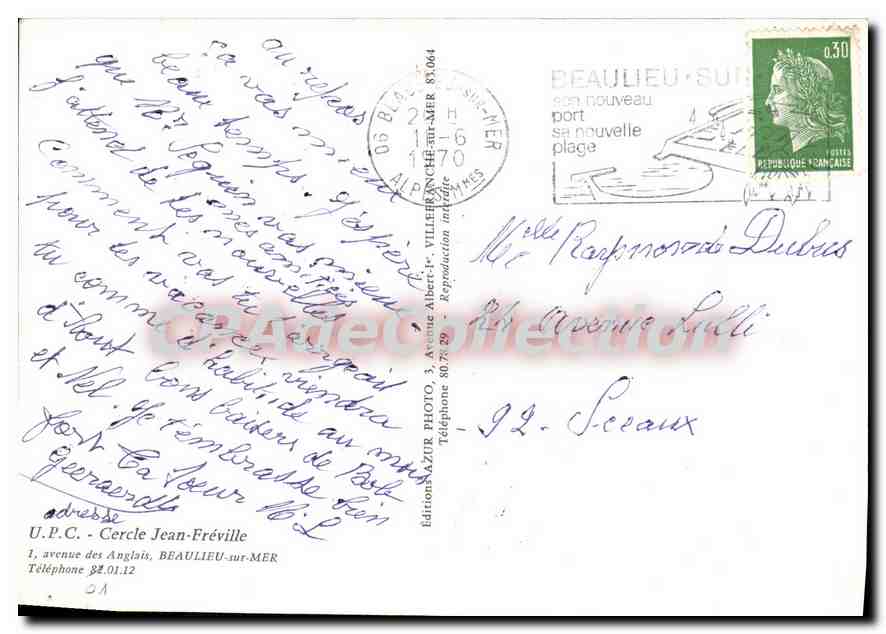 au repos
ça vas mieux
beau temps. J'espère
que Mr Soguion vas mieux
J'attend de tes nouvelles
Comment vas tu
pour tes vacances viendra
tu comme d'habitude au mois
d'Aout bons baisers de Bob
et Nel. Je t'embrasse bien
fort Ta Soeur M.L
Geeraerdts
adresse
U.P.C. - Cercle Jean-Fréville
1, avenue des Anglais, BEAULIEU-sur-MER
Téléphone 82.01.12
01
Éditions AZUR PHOTO, 3, Avenue Albert-Ier, VILLEFRANCHE-sur-MER 83.064
Téléphone 80.78.29 - Reproduction interdite
06 BEAULIEU-sur-MER
1970
ALPES-MMES
BEAULIEU-SUR
son nouveau
port
sa nouvelle
plage
0,30
POSTES
REPUBLIQUE FRANÇAISE
Melle Raymonde Dubus
24 avenue Lulli
- 92 - Sceaux
CPAdeCollection